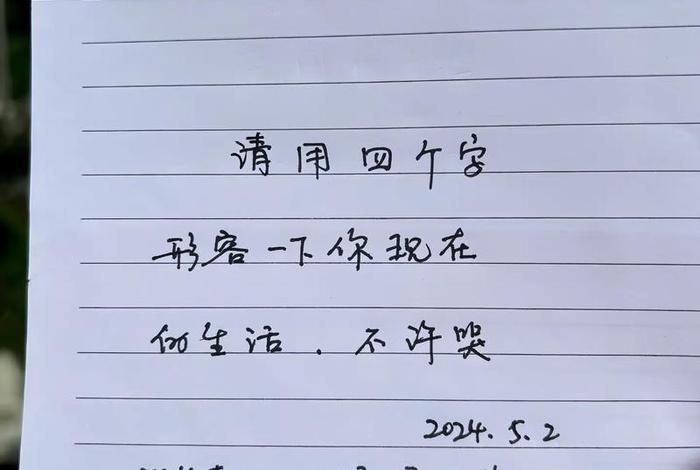 请用四个字
形容一下你现在
的生活.不许哭
2024.5.2